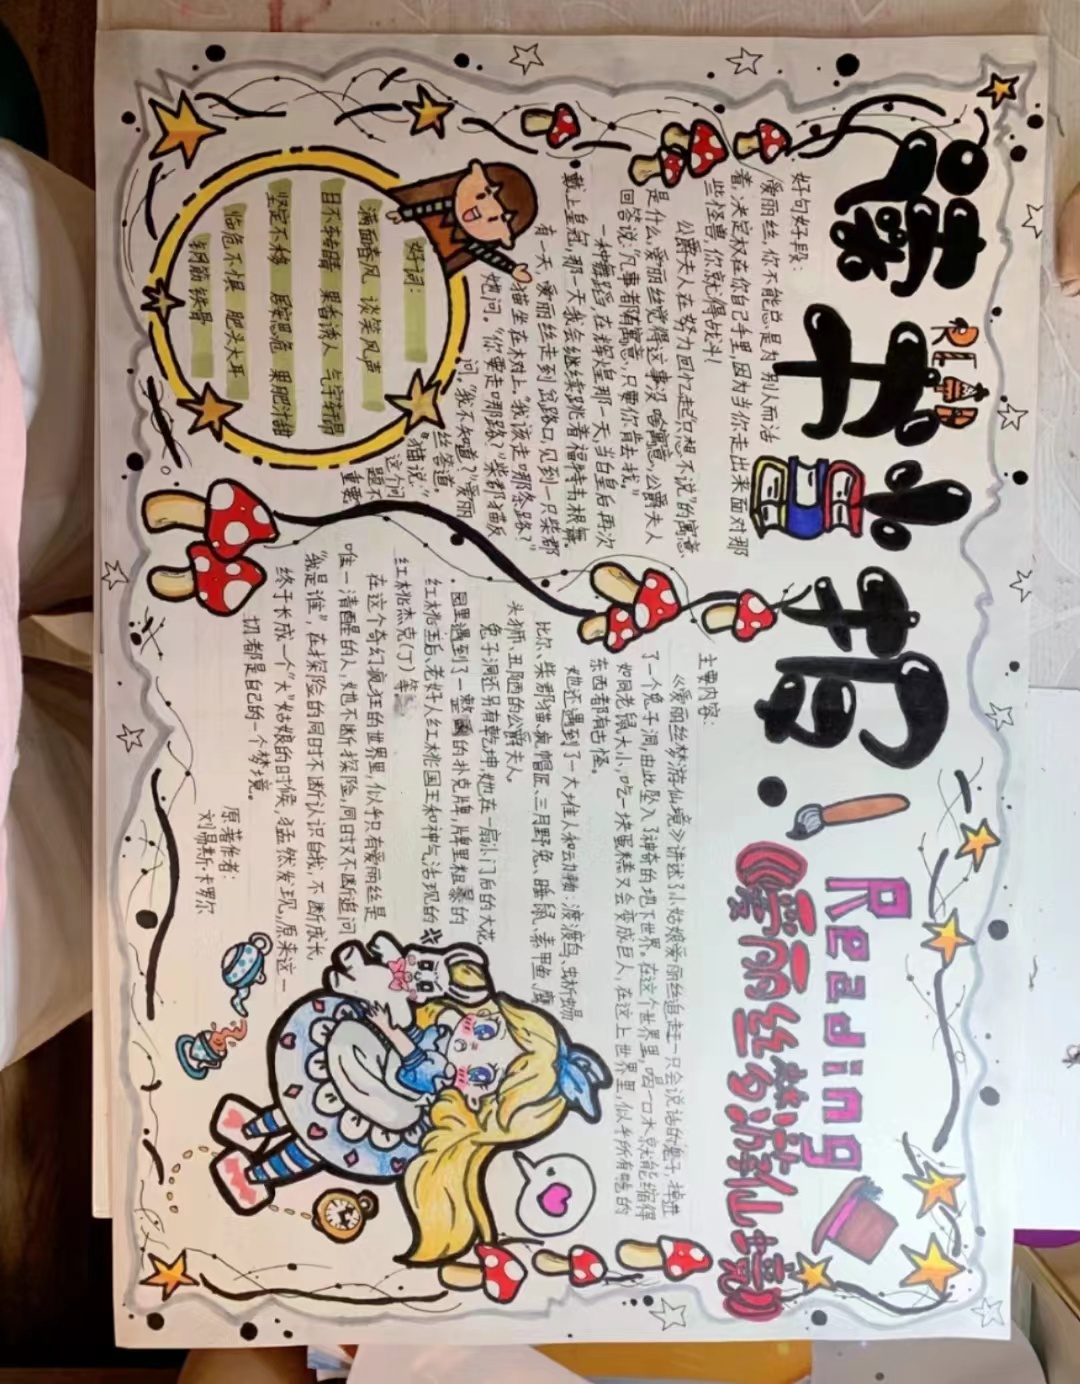 读书小报
READ
Reading
《爱丽丝梦游仙境》
好句好段：
爱丽丝，你不能总是为别人而活
着，决定权在你自己手里，因为当你走出来面对那
些怪兽，你就得战斗！
公爵夫人在努力回忆起只想不说”的寓意
是什么，爱丽丝觉得这事没啥寓意，公爵夫人
回答说：“凡事都有寓意，只要你肯去找。”
一种舞蹈，在辉煌那一天，当白皇后再次
戴上皇冠，那一天我会继续跳着福特韦根舞。
有一天，爱丽丝走到岔路口，见到一只柴郡
猫坐在树上。“我该走哪条路？”
她问。“你要走哪路？”柴郡猫反
问。“我不知道？”爱丽
丝答道。
“猫说，”
这个问
题不
重要
好词：
满面春风 谈笑风声
目不转睛 果香诱人 气宇轩昂
坚定不移 居安思危 果肥汁甜
临危不惧 肥头大耳
钢筋铁骨
主要内容：
《爱丽丝梦游仙境》讲述了小姑娘爱丽丝追赶一只会说话的兔子，掉进
了一个兔子洞，由此坠入了神奇的地下世界。在这个世界里，喝一口水就能缩得
如同老鼠大小，吃一块蛋糕又会变成巨人，在这上世界里，似乎所有吃的
东西都有古怪。
她还遇到了一大堆人和动物：渡渡鸟、蜥蜴
比尔、柴郡猫、疯帽匠、三月野兔、睡鼠、素甲鱼、鹰
头狮、丑陋的公爵夫人。
兔子洞还另有乾坤，她在一扇小门后的大花
园里遇到了一整副的扑克牌，牌里粗暴的
红桃王后、老好人红桃国王和神气活现的
红桃杰克（丁）等。
在这个奇幻疯狂的世界里，似乎只有爱丽丝是
唯一清醒的人，她也不断探险，同时又不断追问
“我是谁”，在探险的同时不断认识自我，不断成长，
终于长成一个“大”姑娘的时候，猛然发现，原来这一
切都是自己的一个梦境。
原著作者：
刘易斯·卡罗尔